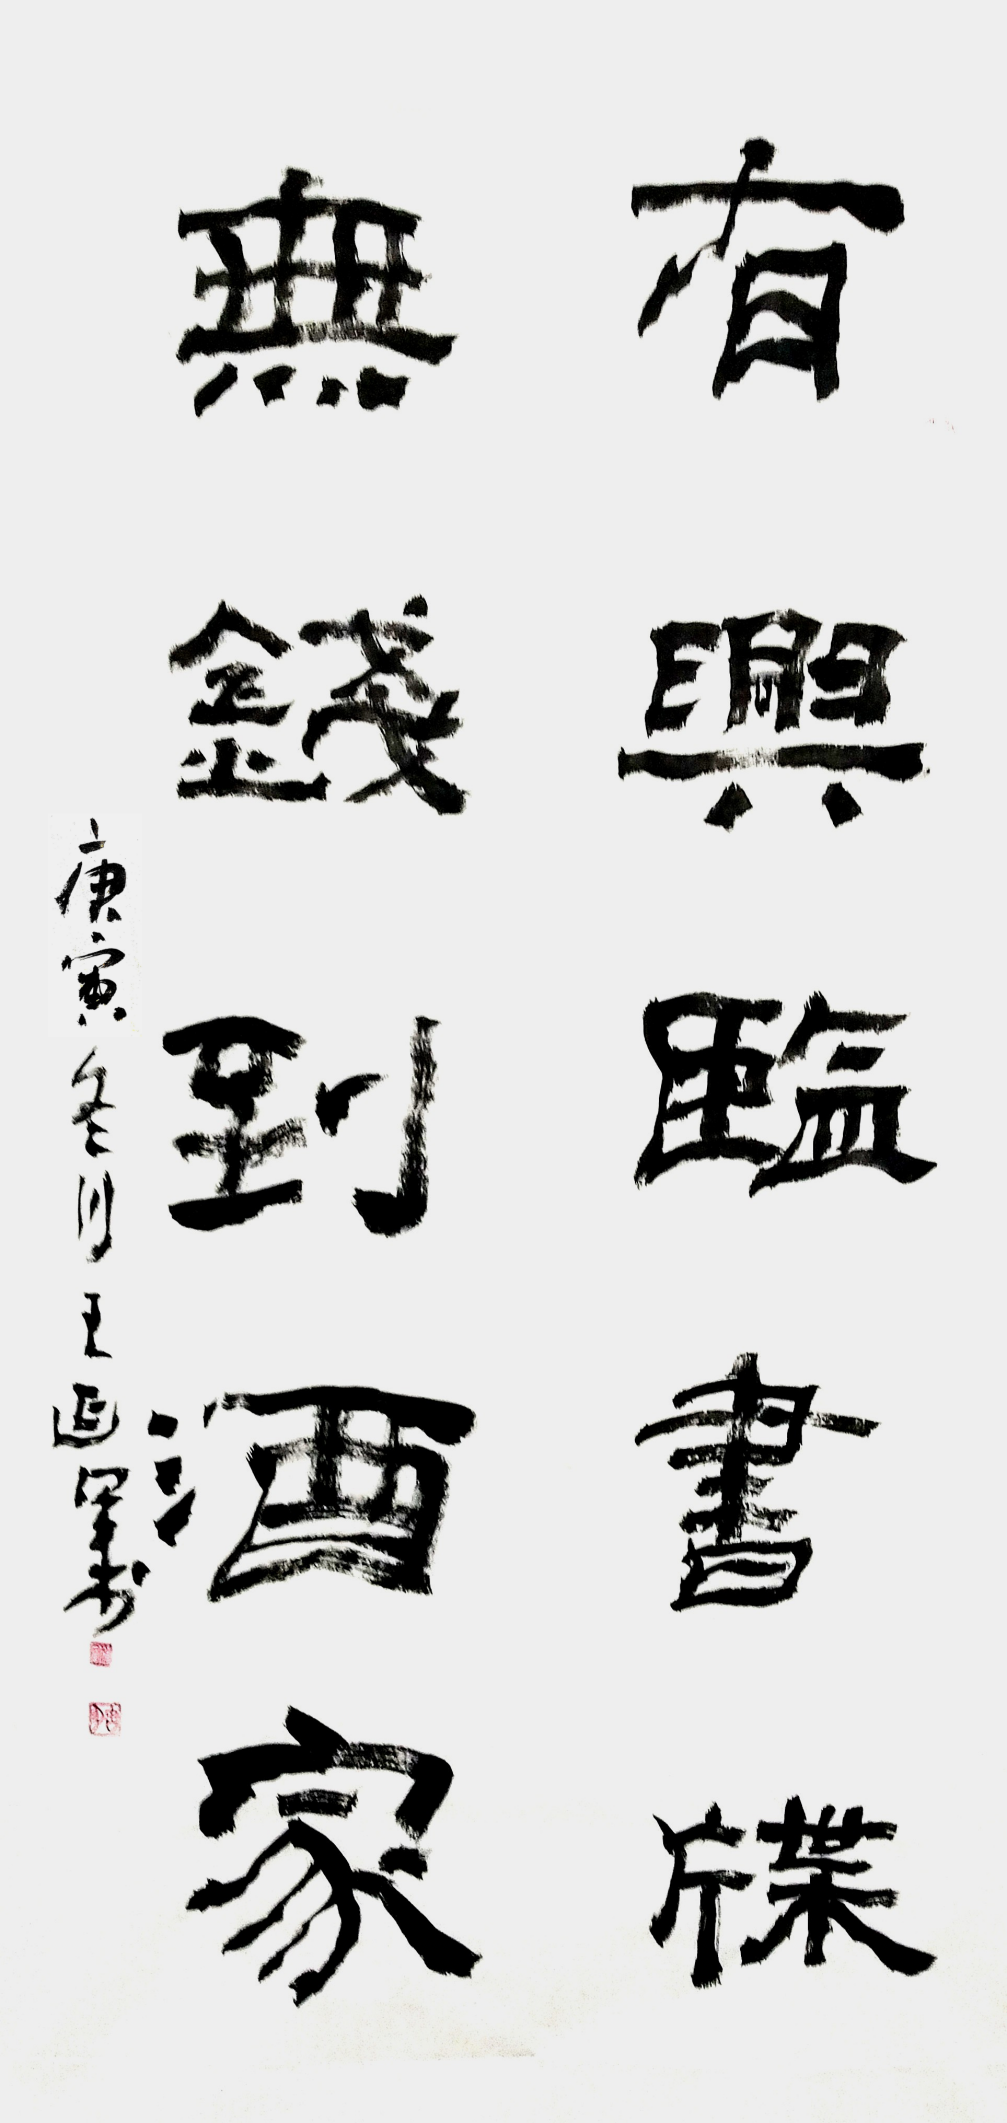 有興臨書牒
無錢到酒家
庚寅冬月王